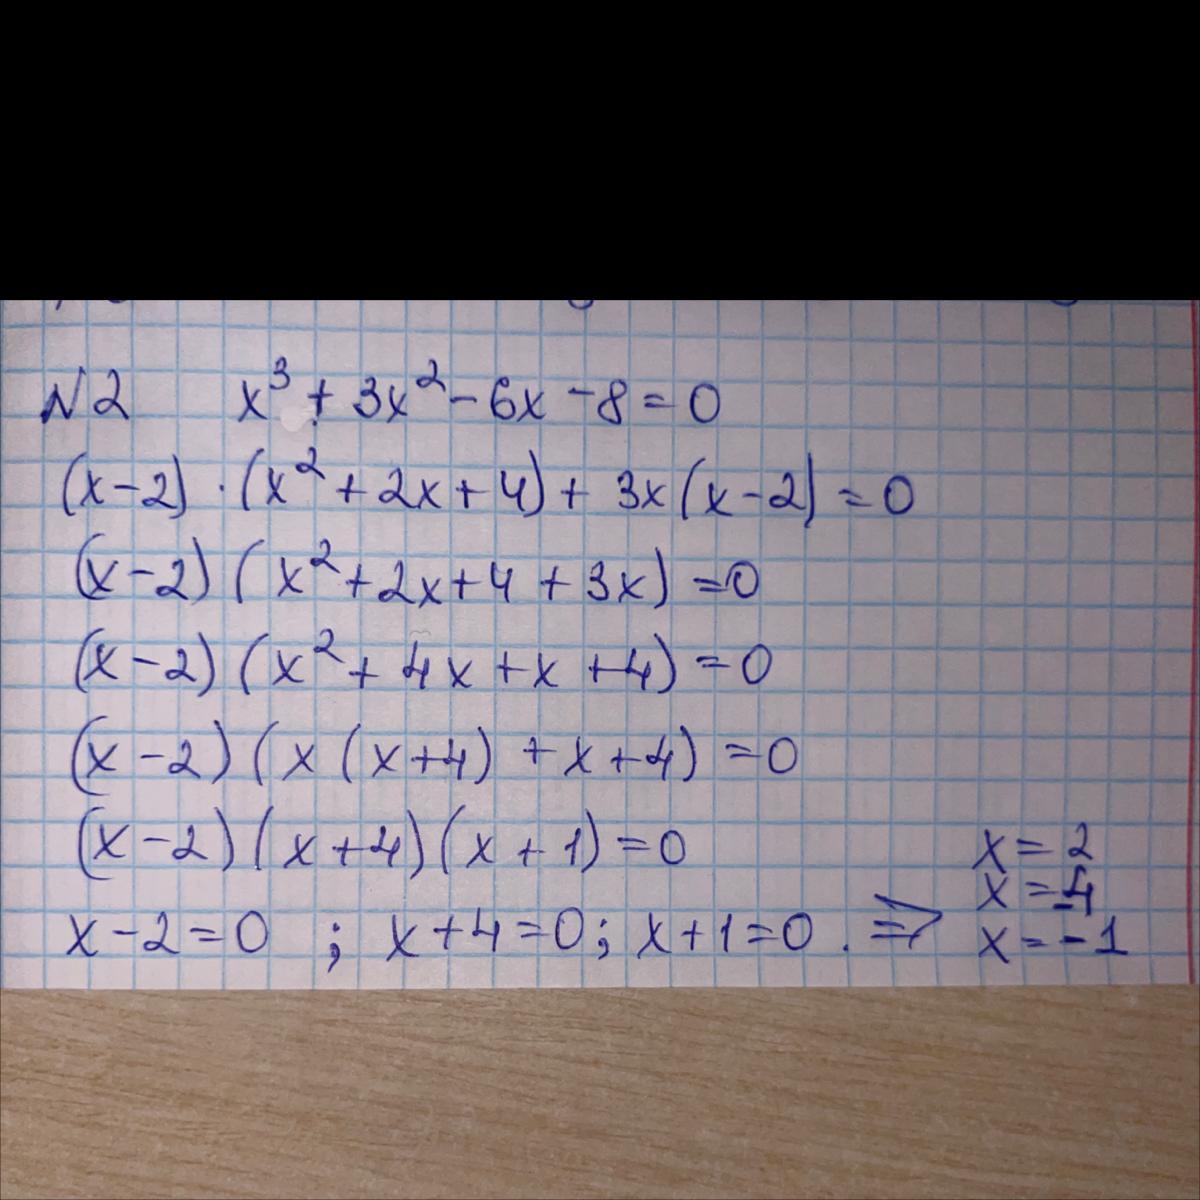 N2 x³ + 3x² - 6x - 8 = 0
(x-2) · (x² + 2x + 4) + 3x(x-2) = 0
(x-2) (x² + 2x + 4 + 3x) = 0
(x-2) (x² + 4x + x + 4) = 0
(x-2) (x (x+4) + x + 4) = 0
(x-2) (x+4) (x+1) = 0
x-2=0 ; x+4=0; x+1=0. ⇒
x = 2
x = -4
x = -1